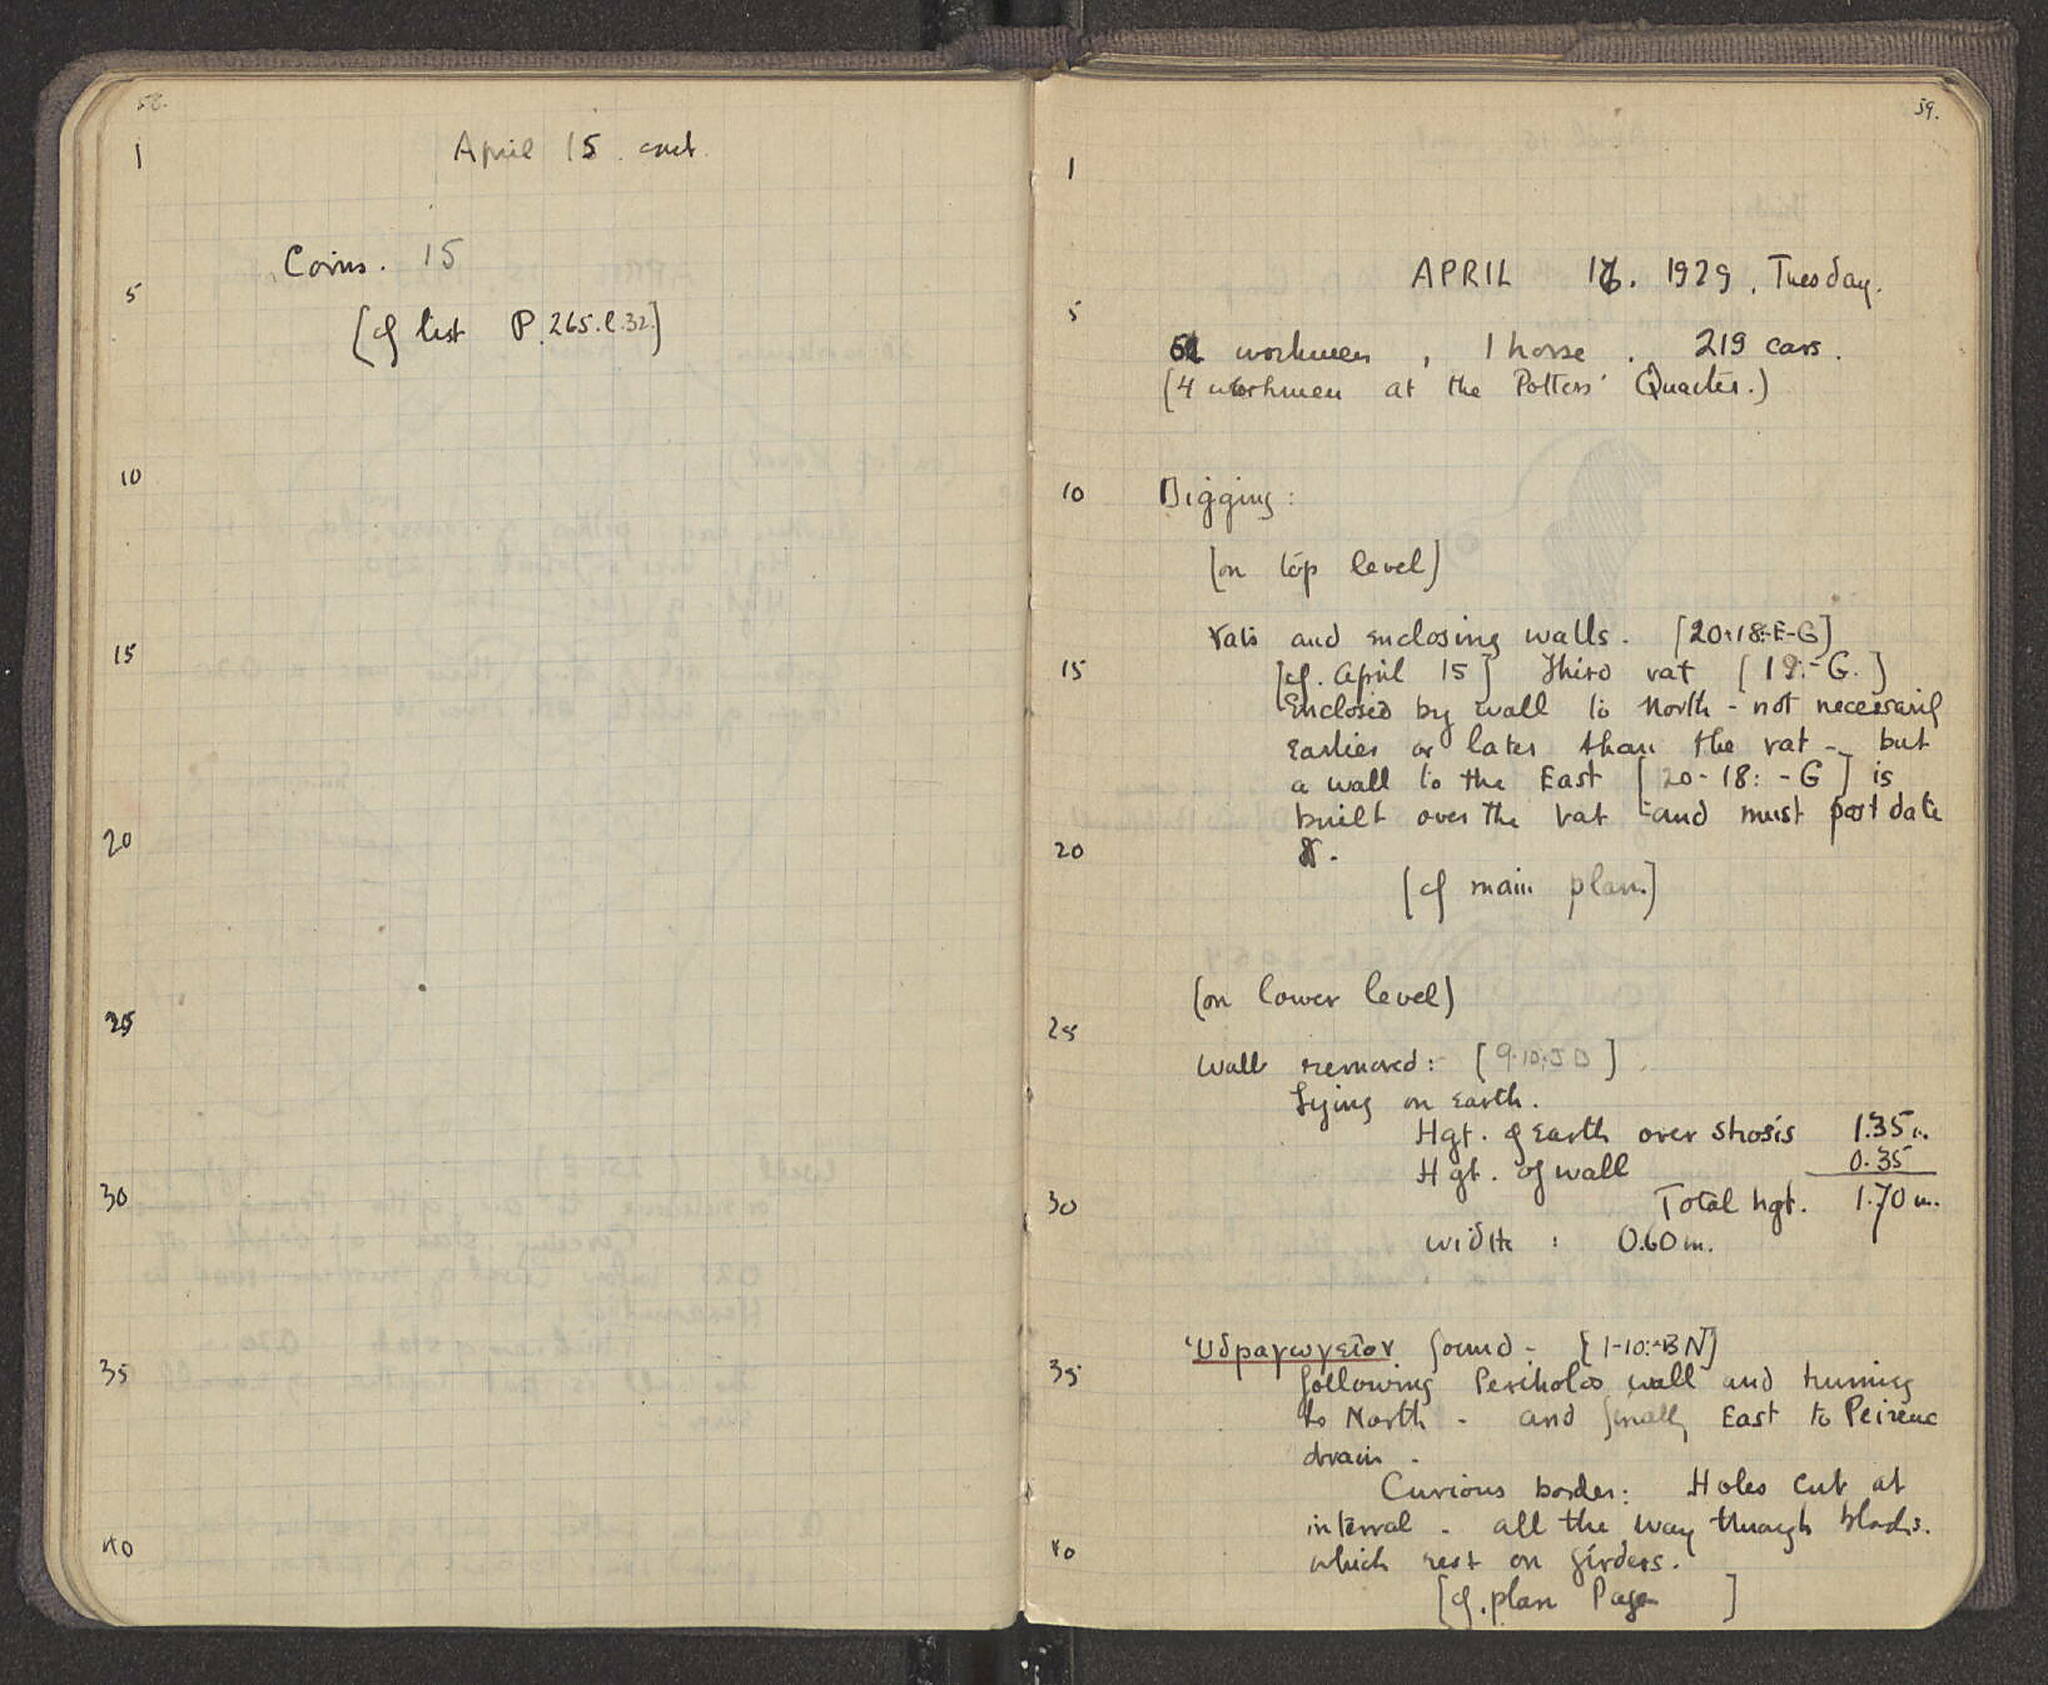 58.
April 15. cont.
1
Coins. 15
5
[cf list P. 265. l. 32.]
10
15
20
25
30
35
40
59.
1
APRIL 16. 1929. Tuesday.
5
workmen, 1 horse. 219 cars.
(4 workmen at the Potters' Quarter.)
10 Digging:
(on top level)
Vats and enclosing walls. [20-18:-E-G]
15 [cf. April 15] Third vat [19:-G.]
Enclosed by wall to North - not necessarily
Earlier or later than the vat - but
a wall to the East [20-18: -G] is
built over the vat and must post date
20 it.
[cf main plan.]
(on lower level)
25
Wall removed: [9-10:]
Lying on Earth.
Hgt. of Earth over stosis 1.35 m.
Hgt. of wall 0.35
30 Total hgt. 1.70 m.
width : 0.60 m.
Ὑδραγωγεῖον found - [1-10:-BN]
35 following Peribolos wall and turning
to North - and finally East to Peirene
drain.
Curious border: Holes cut at
interval - all the way through blocks.
40 which rest on girders.
[cf. plan Page ]